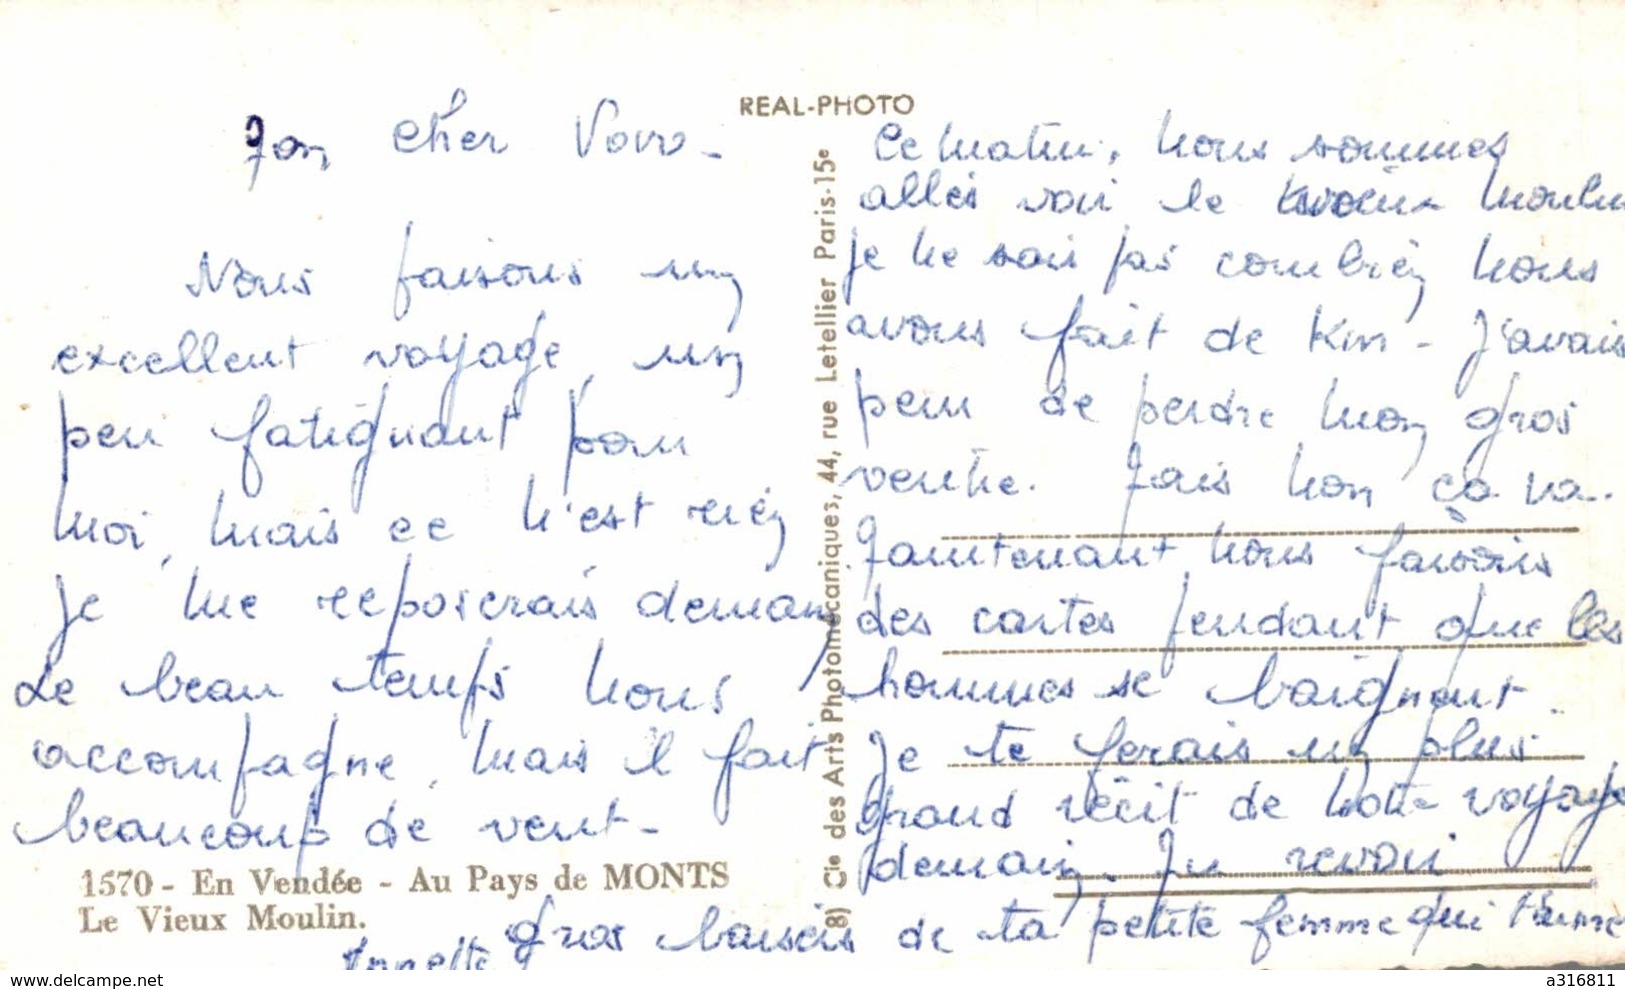 REAL-PHOTO
Mon cher Vovo-
Nous faisons un
excellent voyage, un
peu fatiguant pour
moi, mais ce n'est rien
Je me reposerais demain
Le beau temps nous
accompagne, mais il fait
beaucoup de vent-
1570 - En Vendée - Au Pays de MONTS
Le Vieux Moulin.
8) Cie des Arts Photomécaniques, 44, rue Letellier Paris-15e
Ce matin, nous sommes
allés voir le moulin
je ne sais pas combien nous
avons fait de Km - J'avais
peur de perdre mon gros
ventre. Mais non ça va.
Maintenant nous faisons
des cartes pendant que les
hommes se baignent.
Je te ferais un plus
grand récit de notre voyage
demain. Au revoir
Gros baisers de ta petite femme qui t'aime
Annette
www.delcampe.net
a316811